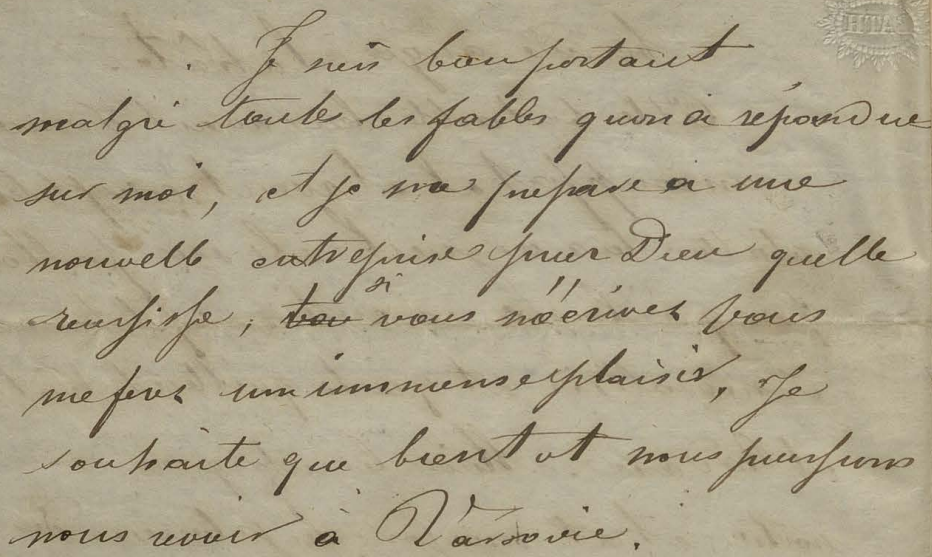 Je suis bien portant
malgré toute les fables qu'on a répandue
sur moi, et je me prepare a une
nouvelle entreprise priez Dieu quelle
reussisse, si vous m'écrivez vous
me ferez un immense plaisir, Je
souhaite que bientot nous puissions
nous revoir à Varsovie.